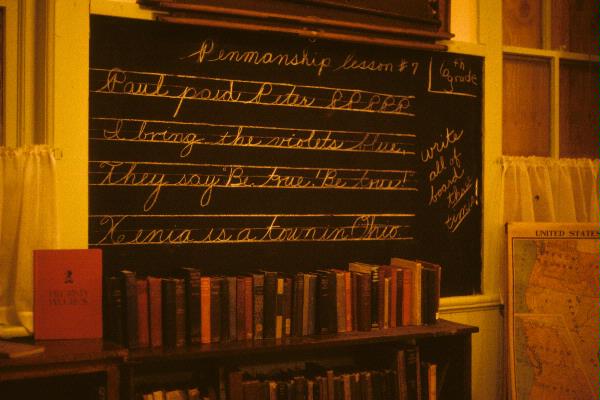 Penmanship lesson #7
6th grade
Paul paid Peter PPPPP
I bring the violets blue,
They say "Be true! Be true!"
Xenia is a town in Ohio
write
all of
board
these
times!
2
UNITED STATES